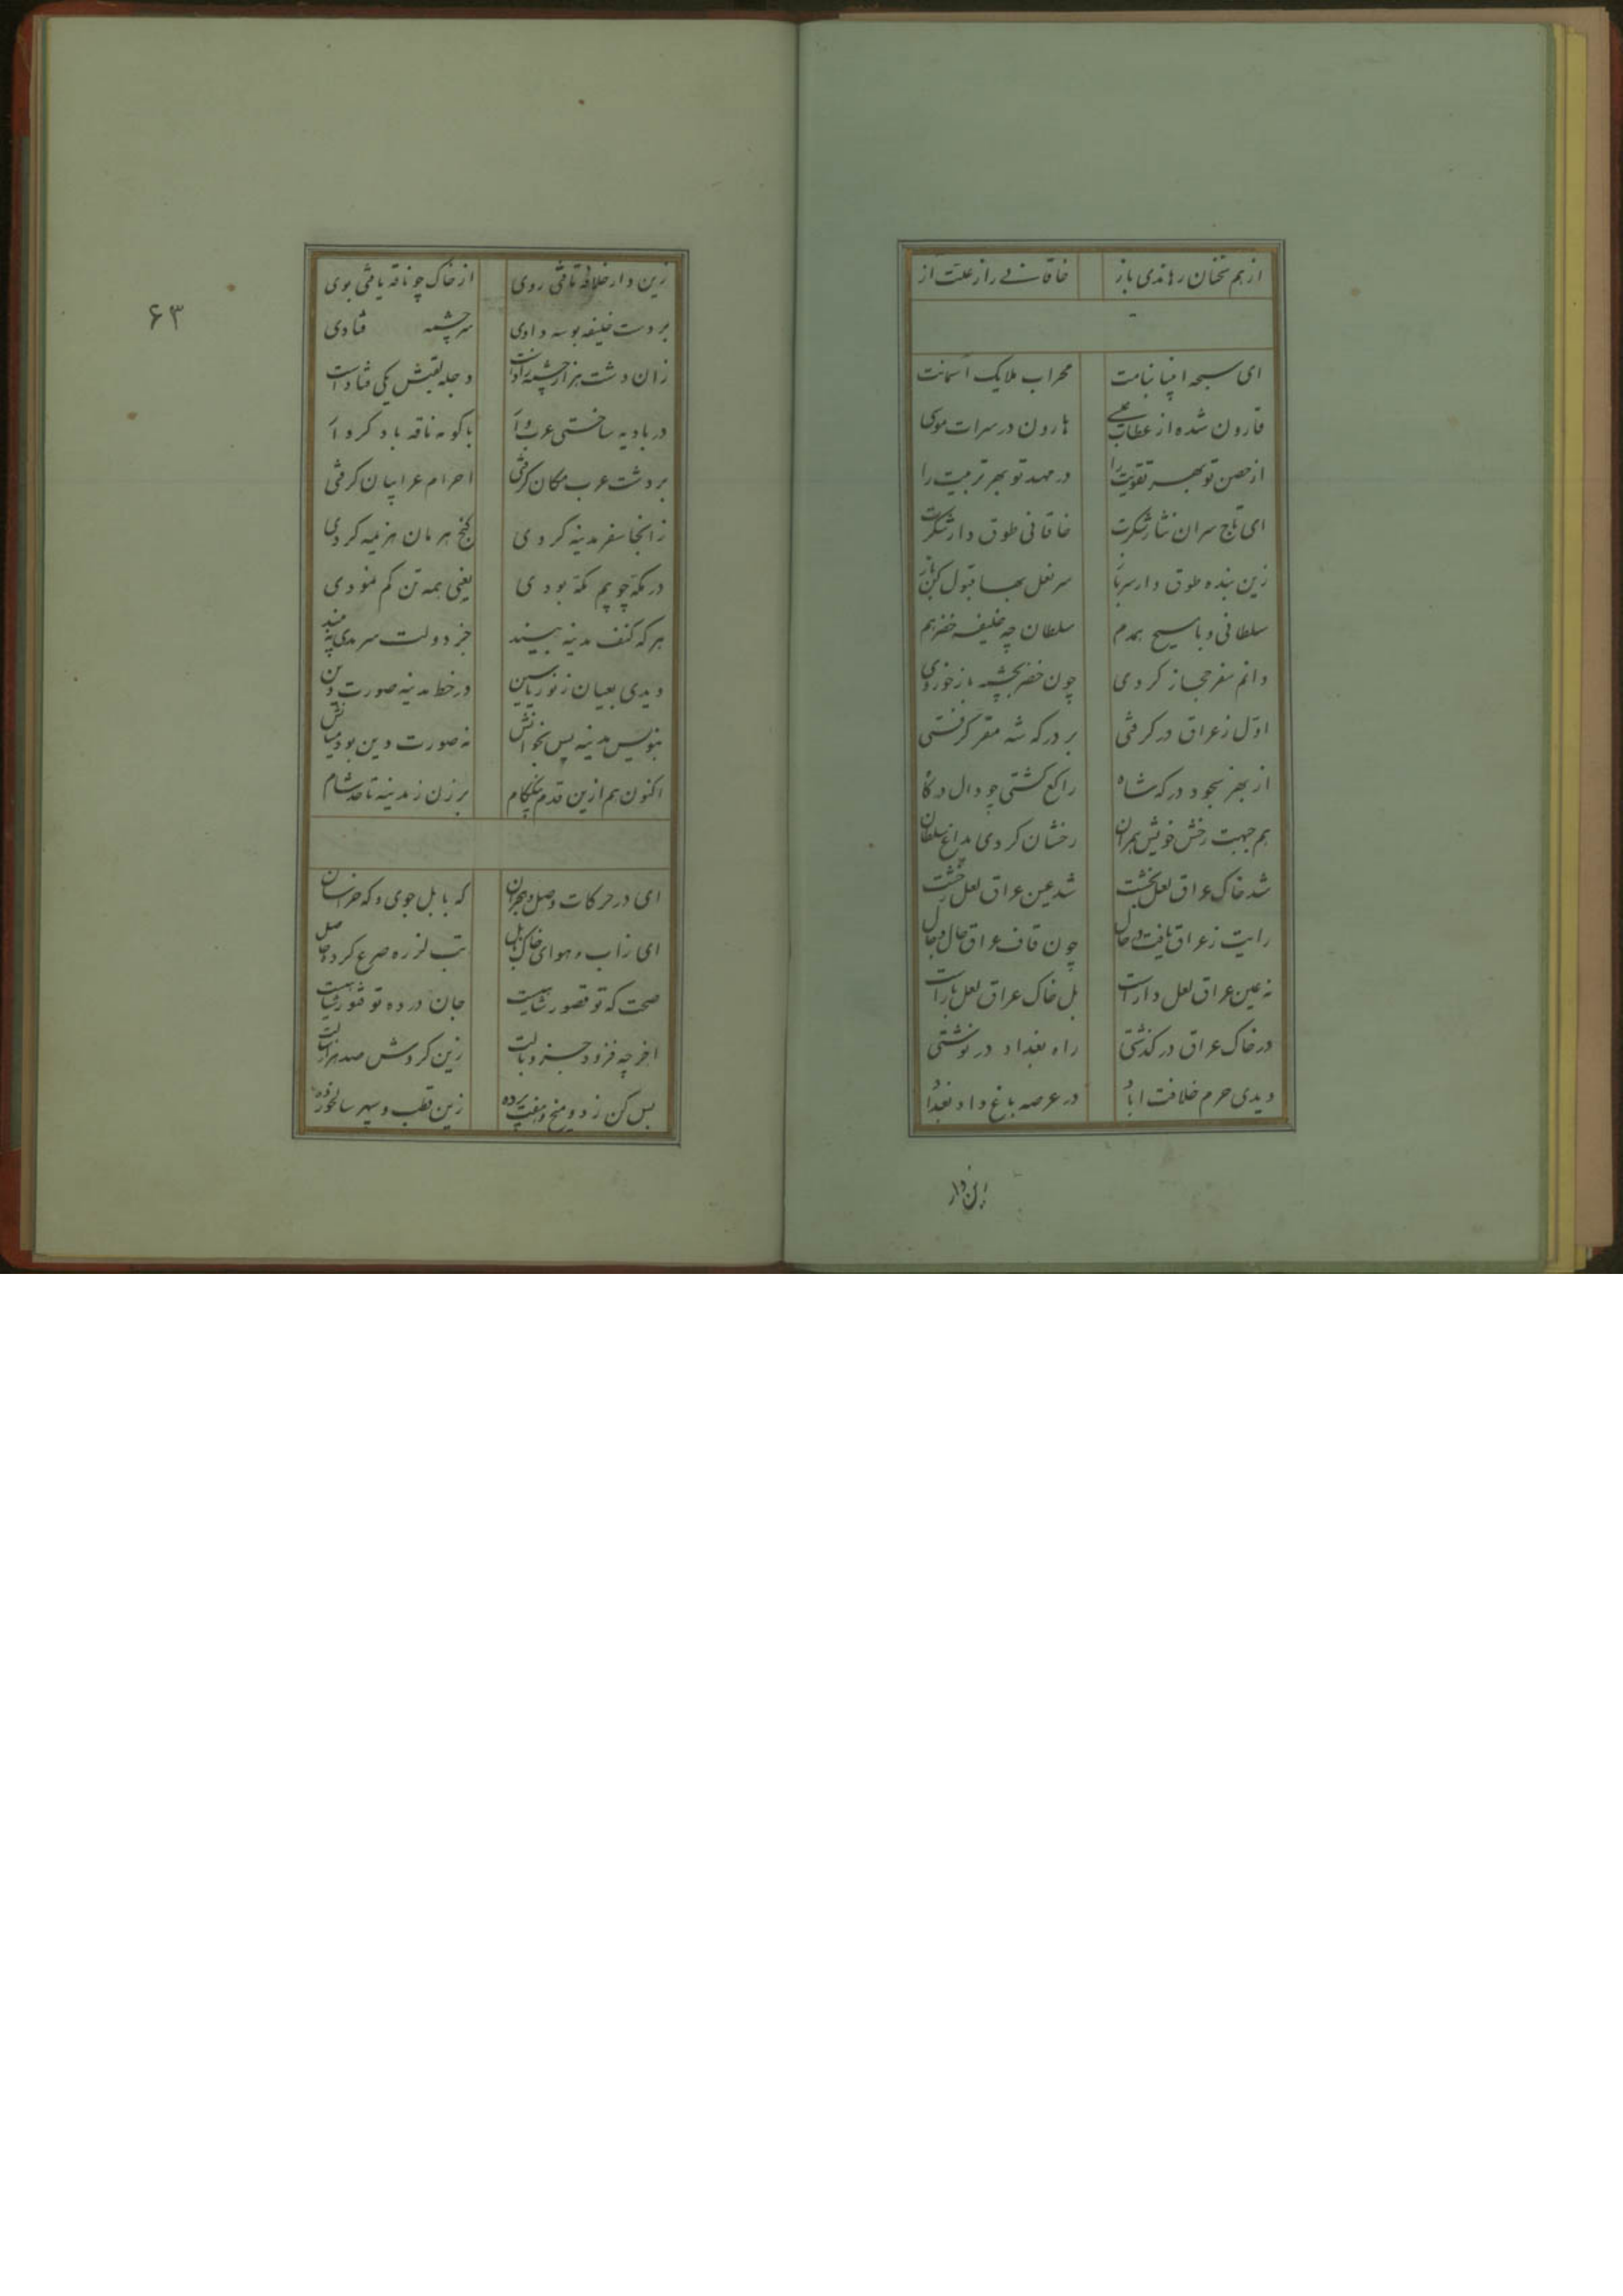 از هم سخنان رهاندی باز خاقانی را ز علت از
ای سبحه انبیا بنامت محراب ملایک آستانت
قارون شده از عطات عیسی هارون در سرات موسی
از حصن تو بهر تقویت را در مهد تو بهر تربیت را
ای تاج سران نثار شکرت خاقانی طوق دار شکرت
زین بنده طوق دار سرباز سر نعل بها قبول کن باز
سلطانی و با مسیح همدم سلطان چه خلیفه خضر هم
دانم سفر حجاز کردی چون خضر بچشمه باز خوردی
اول ز عراق در کرفتی بر درکه شه مقر کرفتی
از بهر سجود درکه شاه راکع کشتی چو دال درکاه
هم جبهت رخش خویش همران رخشان کردی بداغ سلطان
شد خاک عراق لعل بخشت شد عین عراق لعل رخشت
رایت ز عراق یافت در حال چون قاف عراق حال و جال
نه عین عراق لعل دارست بل خاک عراق لعل بارست
در خاک عراق در کذشتی راه بغداد در نوشتی
دیدی حرم خلافت آباد در عرصه باغ داد بغداد
زین دار
۶۳
زین دار خلافه تافتی روی از خاک چو ناقه یافتی بوی
بر دست خلیفه بوسه دادی سرچشمه فتادی
زان دشت هزار چشمه زادست دجله لقبش یکی فتادست
در بادیه ساختی عرب وار با کوبه ناقه باد کردار
بر دشت عرب مکان کرفتی احرام عرابیان کرفتی
زانجا سفر مدینه کردی کنج هرمان هزینه کردی
در مکه چو میم مکه بودی یعنی همه تن کم نمودی
هر که کنف مدینه بیند جز دولت سرمدی نه بیند
دیدی بعیان ز نور یاسین در خط مدینه صورت دین
بنویس مدینه پس بخوانش نه صورت دین بود میانش
اکنون هم ازین قدم بکام بر زن ز مدینه تا حد شام
ای در حرکات وصل و هجران که بابل جوی و که خراسان
ای ز آب و هوای خاک بابل تب لرزه صرع کرده حاصل
صحت که تو قصور شناسیت جان در ده تو فتور شناسیت
اخر چه فزود جنز وبالت زین کردش صد هزار سالت
بس کن ز دو میخ و هفت پرده زین قطب و سپهر سالخورده